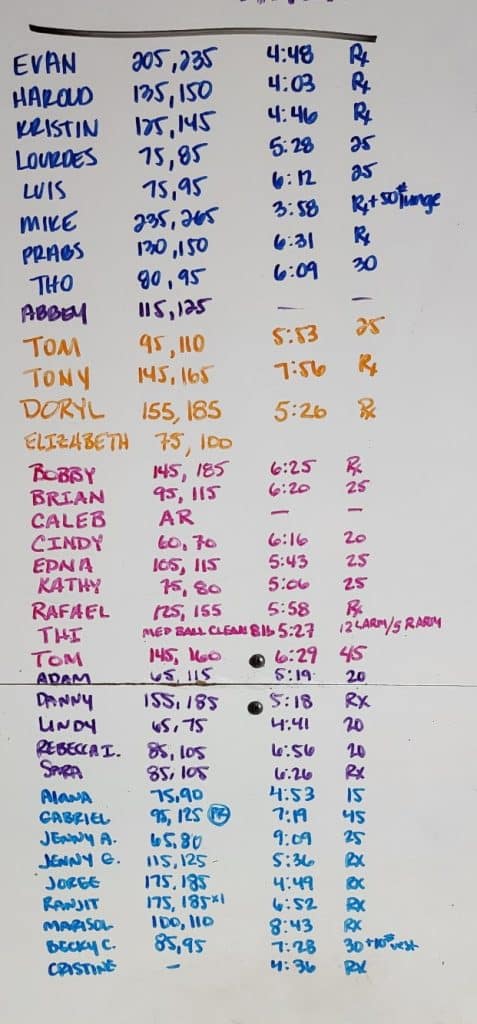 EVAN 205,235 4:48 Rx
HAROLD 135,150 4:03 Rx
KRISTIN 125,145 4:46 Rx
LOURDES 75,85 5:28 25
LUIS 75,95 6:12 25
MIKE 235,265 3:58 Rx+50# lunge
PRABS 130,150 6:31 Rx
THO 80,95 6:09 30
ABBEY 115,125 — —
TOM 95,110 5:53 25
TONY 145,165 7:56 Rx
DORYL 155,185 5:26 Rx
ELIZABETH 75,100
BOBBY 145,185 6:25 Rx
BRIAN 95,115 6:20 25
CALEB AR — —
CINDY 60,70 6:16 20
EDNA 105,115 5:43 25
KATHY 75,80 5:06 25
RAFAEL 125,155 5:58 Rx
THI MED BALL CLEAN 8lb 5:27 12 LARM/5 RARM
TOM 145,160 6:29 45
ADAM 65,115 5:19 20
DANNY 155,185 5:18 RX
LINDY 65,75 4:41 20
REBECCA I. 85,105 6:56 20
SARA 85,105 6:26 RX
AIANA 75,90 4:53 15
GABRIEL 95,125 PR 7:19 45
JENNY A. 65,80 9:09 25
JENNY G. 115,125 5:36 RX
JORGE 175,185 4:49 RX
RANJIT 175,185x1 6:52 RX
MARISOL 100,110 8:43 RX
BECKY C. 85,95 7:28 30+10# vest
CRISTINE — 4:36 RX